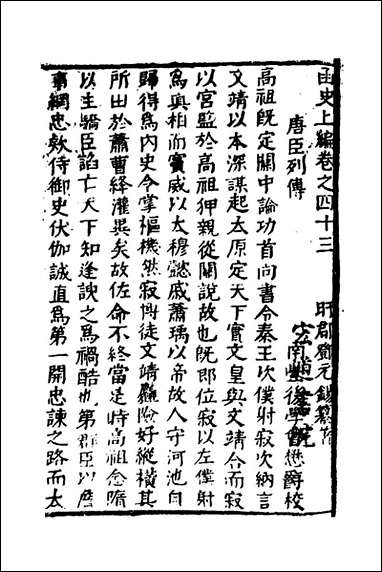 函史上編卷之四十三
盱郡鄧元錫纂
南豐後學曾懋爵校
唐臣列傳
高祖既定關中論功首向書令秦王次僕射寂次納言
文靖以本深謀起太原定天下實文皇與文靖合而寂
以宮監於高祖狎親從關說故也既即位寂以左僕射
為真相而竇威以太穆懿戚蕭瑀以帝故人守河池自
歸得為內史令掌樞機然寂傳徒文靖麤險好縱橫其
所出於蕭曹絳灌異矣故佐命不終當是時高祖念隋
以主驕臣諂亡天下知逢諛之為禍酷也第群臣以詹
事綱忠款侍御史伏伽誠直為第一開忠諫之路而太